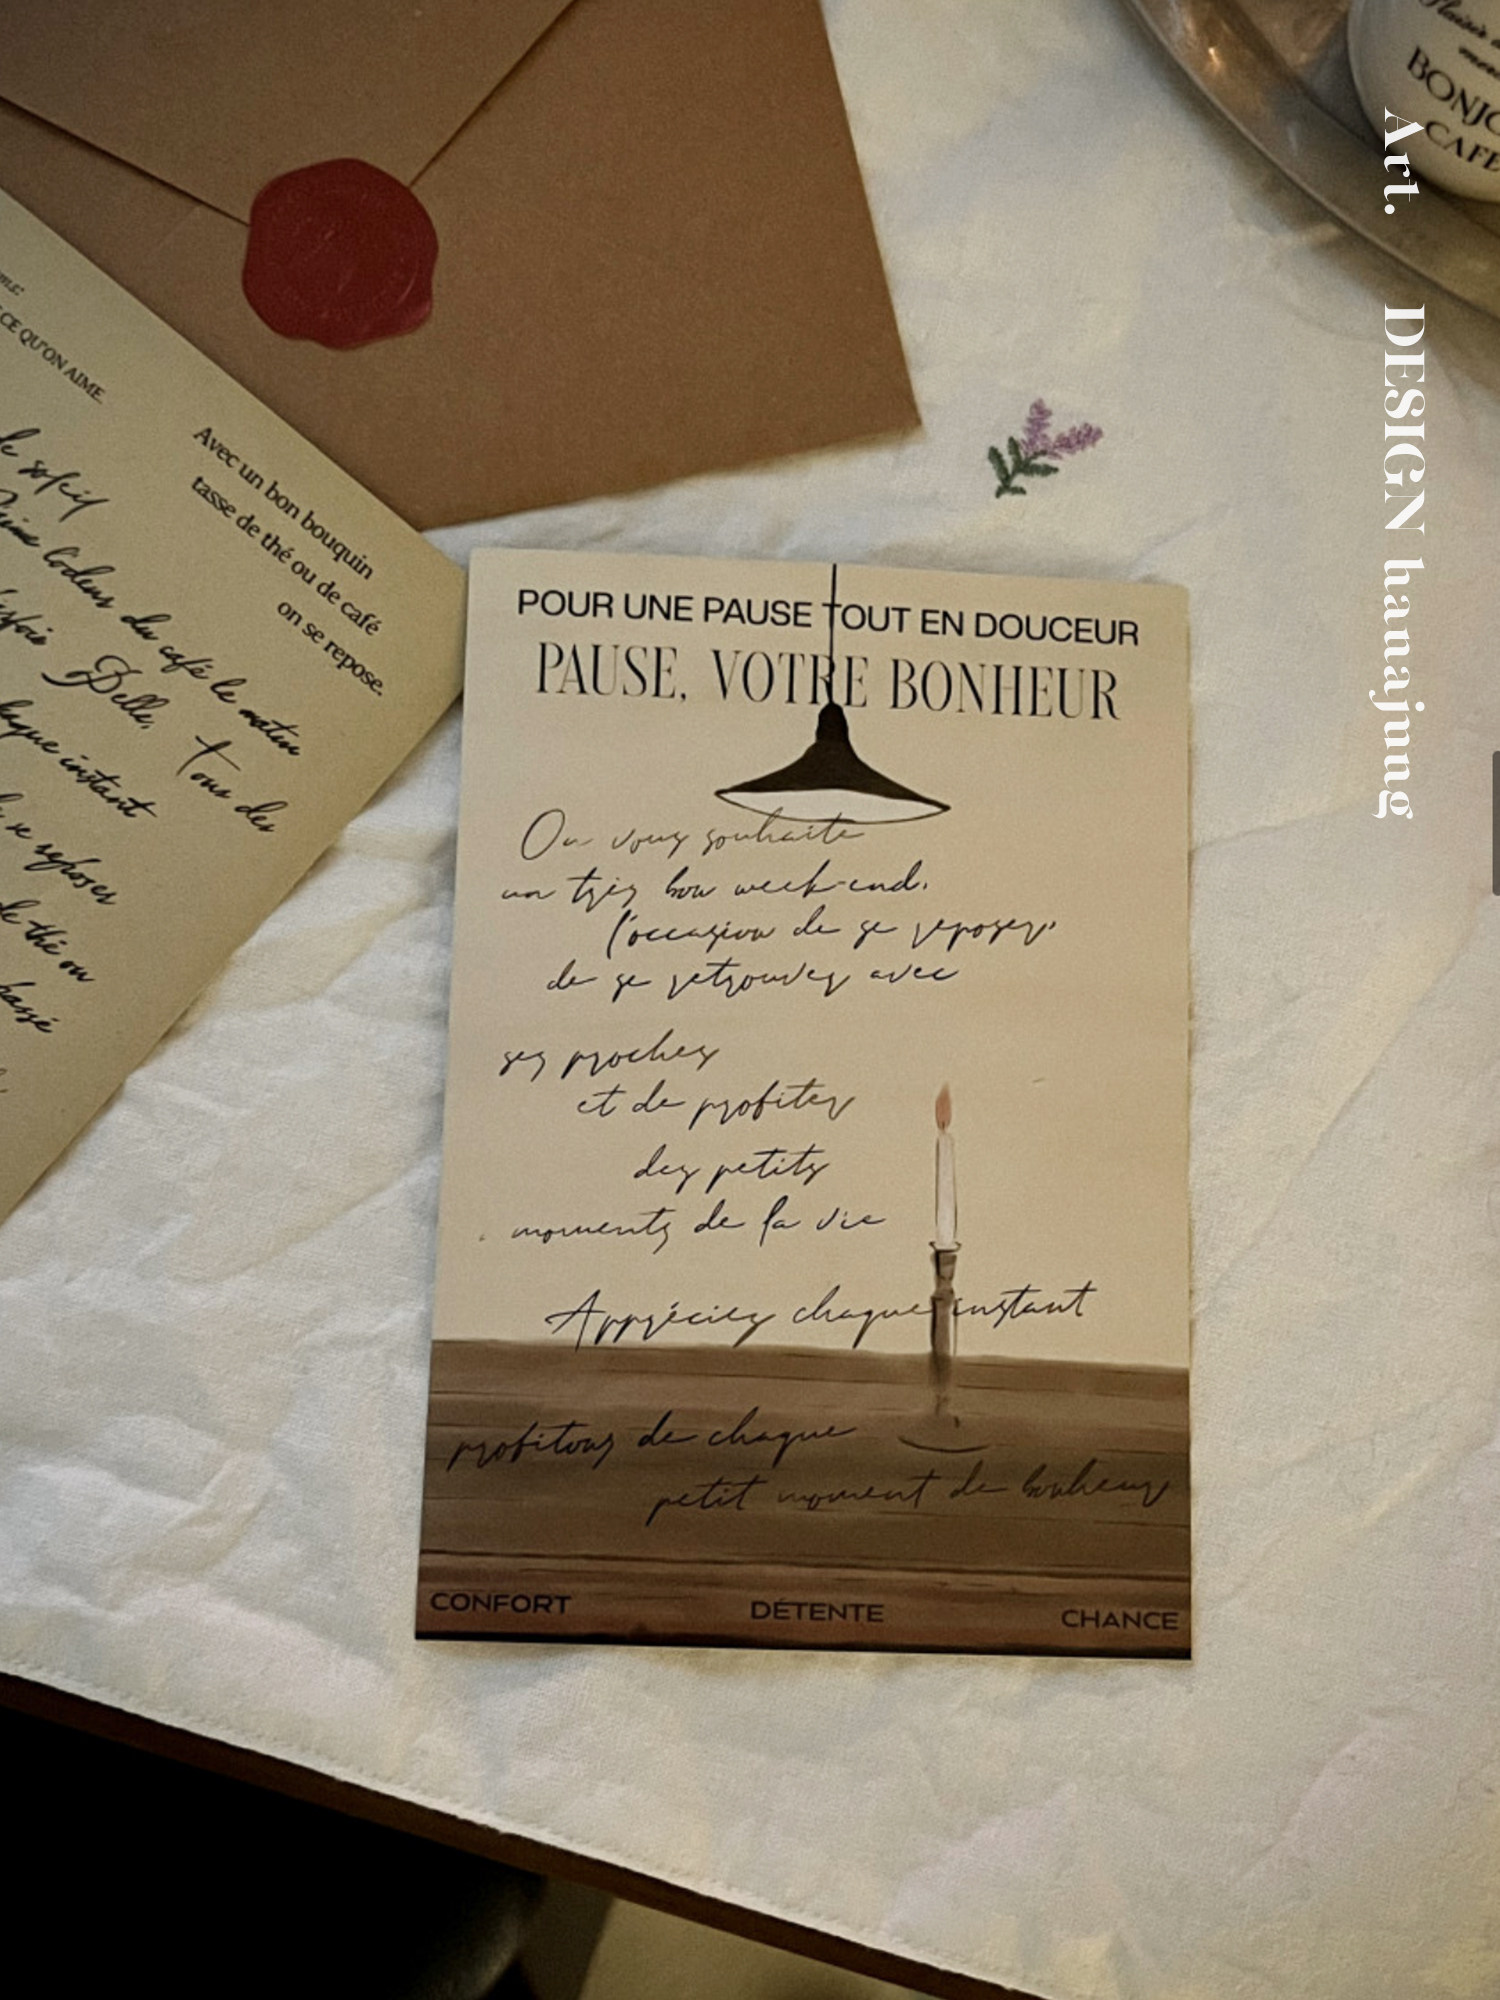 Plaisir
BONJO
CAFE
Art. DESIGN hanajung
CE QU'ON AIME.
Avec un bon bouquin
tasse de thé ou de café
on se repose.
le soleil
l'odeur du café le matin
Belle, Tous des
instant
se reposer
de thé ou
passé
POUR UNE PAUSE TOUT EN DOUCEUR
PAUSE, VOTRE BONHEUR
On vous souhaite
un très bon week-end,
l'occasion de se reposer,
de se retrouver avec
ses proches
et de profiter
des petits
moments de la vie
Appréciez chaque instant
profitons de chaque
petit moment de bonheur
CONFORT DÉTENTE CHANCE